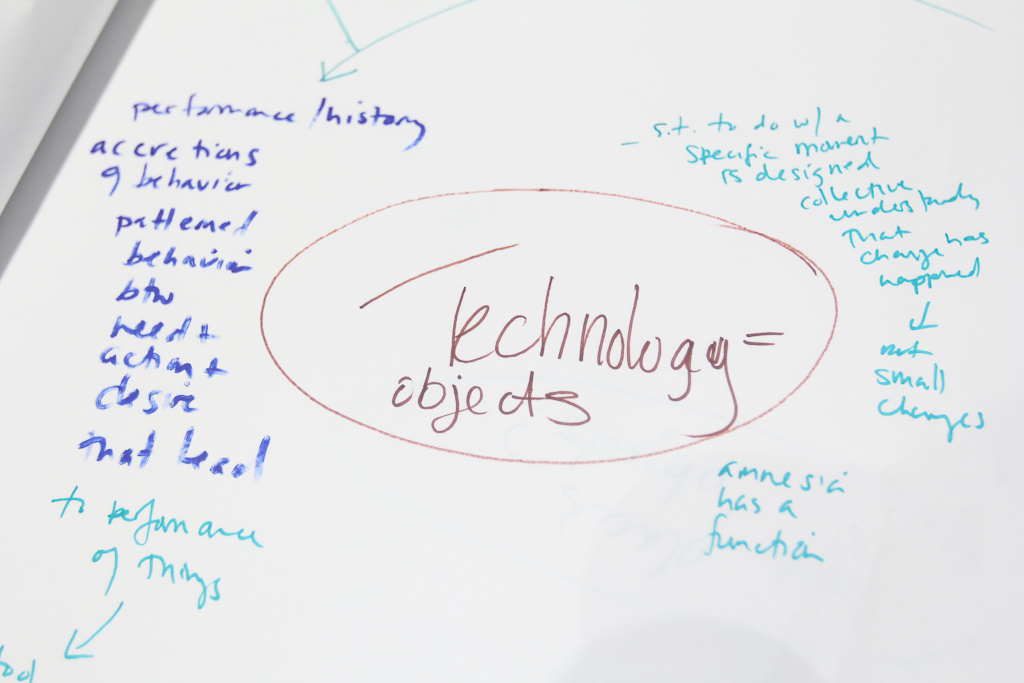 performance/history
accretions
of behavior
patterned
behavior
btw
need +
action +
desire
that lead
to performance
of things
tool
Technology =
objects
– s.t. to do w/ a
specific moment
is designed
collective
understandg
that
change has
happened
not
small
changes
amnesia
has a
function